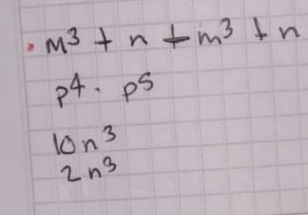 • m³ + n + m³ + n
p⁴ · p⁵
10n³
2n³